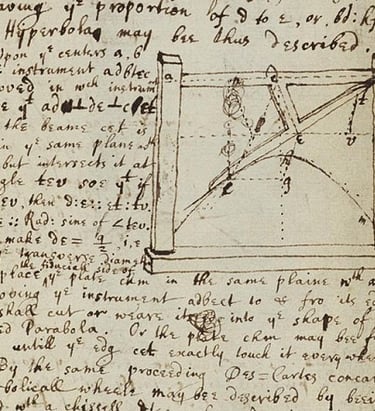 aving yᵉ proportion of d to e, or, bd: h
Hyperbola may bee thus described.
upon yᵉ centers a, b
e instrument adbtec
oved in wch instrum
e yᵗ ad⊥de⊥cet
the beame cet is
in yᵉ same plane
but intersects it at
gle tev soe yᵗ if
ev, then d:e::et:tv.
e :: Rad: sine of <tev.
make de= q/2 i, e
yᵉ transverse diamet
the fiduciall side of
place yᵉ plate chm in the same plaine wth a
oving yᵉ instrument adbect to & fro its e
shall cut or weare it into yᵉ shape of
ed Parabola. Or the plate chm may bee f
untill yᵉ edg cet exactly touch it every whe
By the same proceeding Des=Cartes conca
bolicall wheele may bee described by beei
d wth a chissell
a
c
t
e
v
g
m